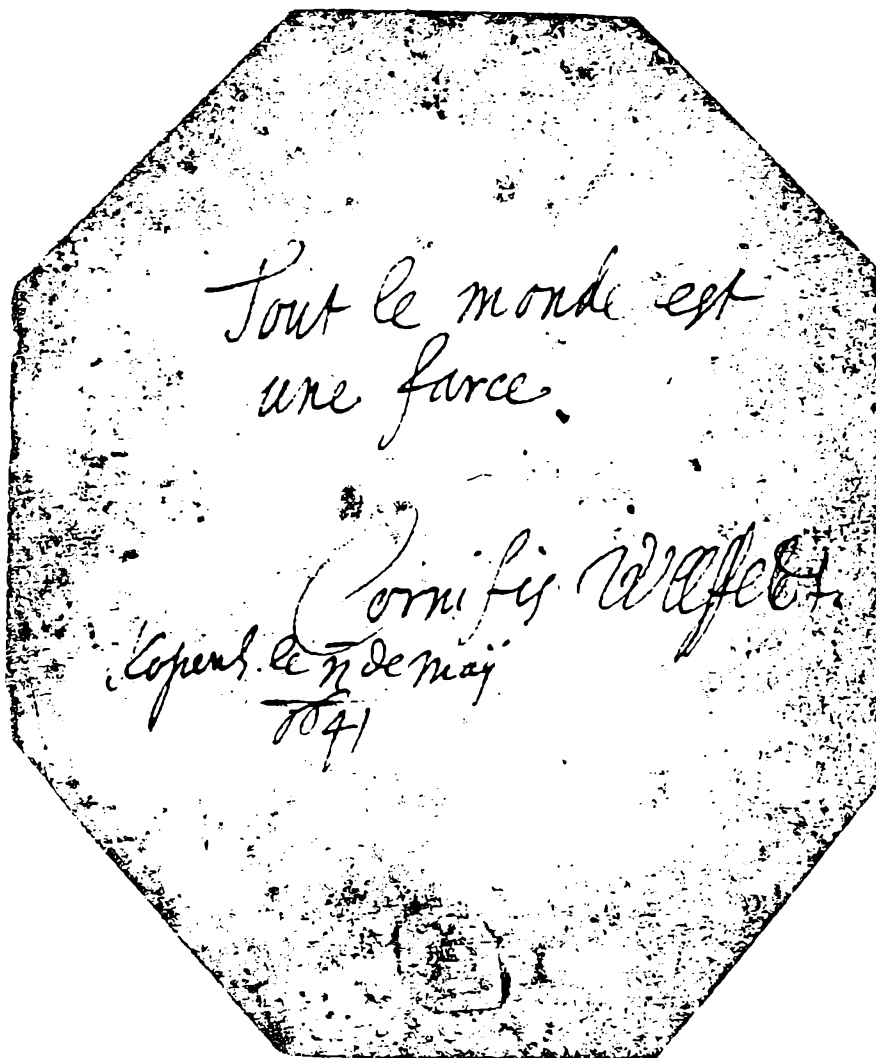 Tout le monde est
une farce.
Cornifis Wllfeldt.
Copenh. le de maÿ
41